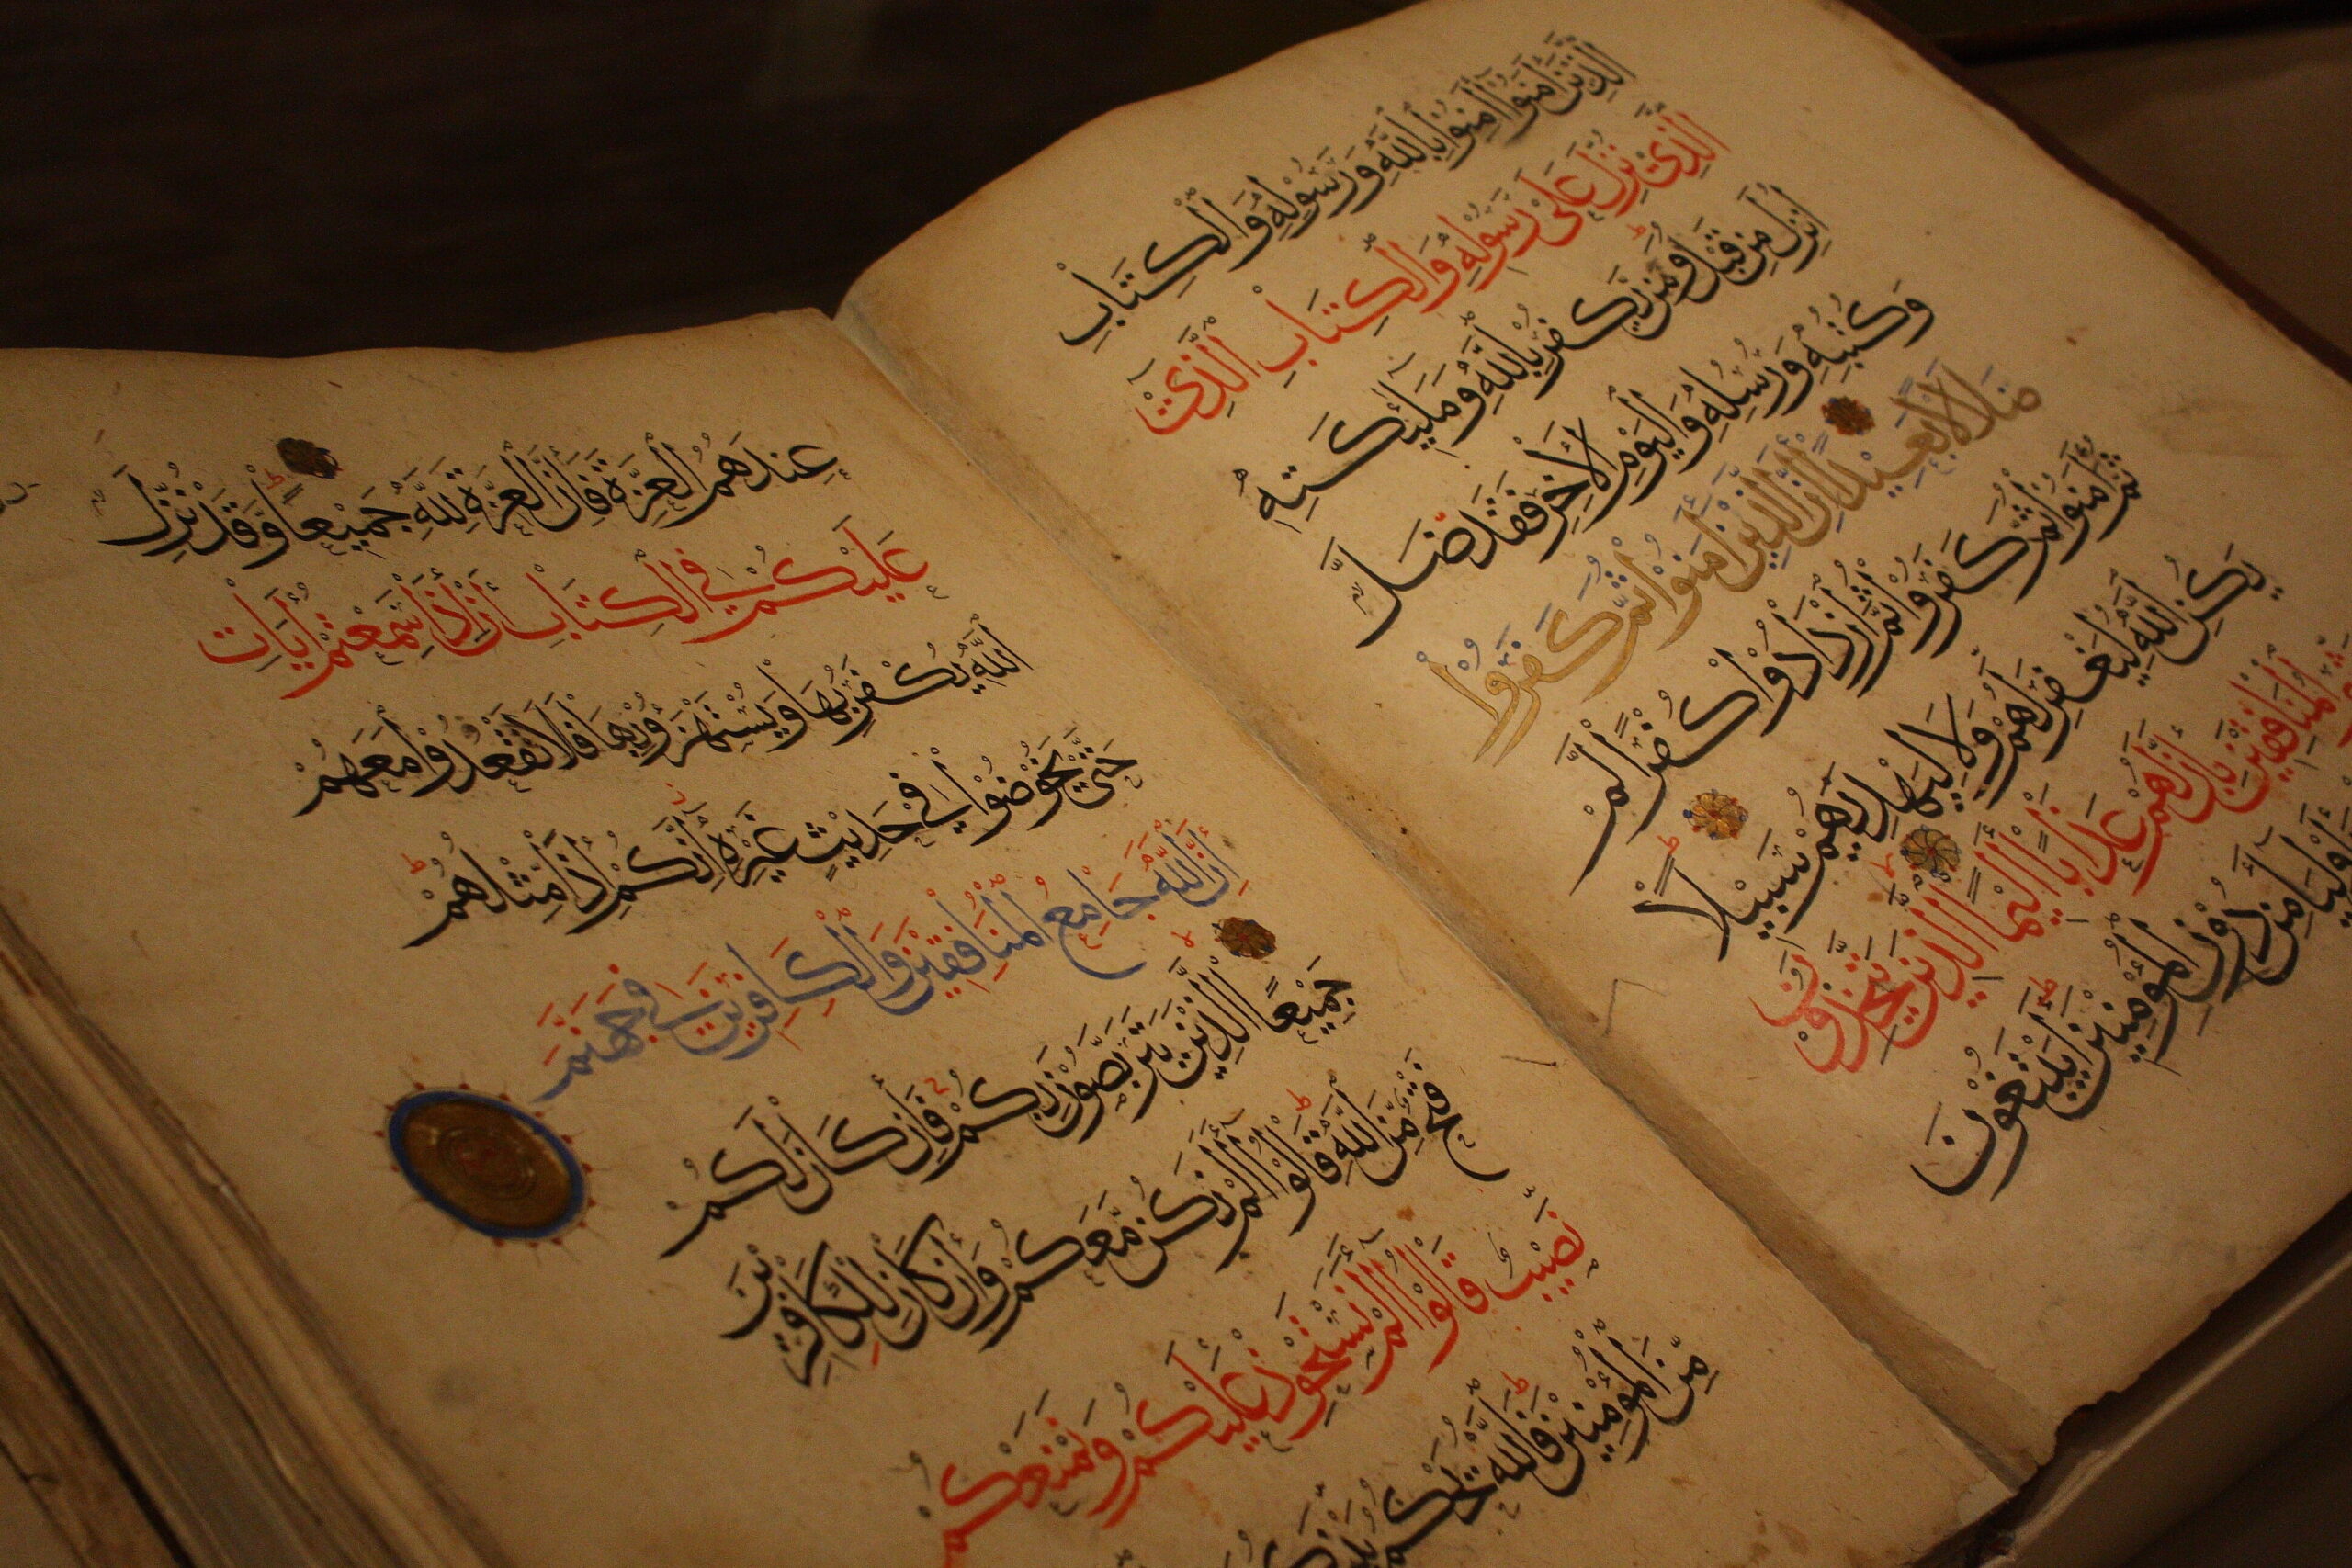 الَّذِيْنَ آمَنُوْا آمِنُوْا بِاللّٰهِ وَرَسُوْلِهِ وَالْكِتَابِ
الَّذِيْ نَزَّلَ عَلَىٰ رَسُوْلِهِ وَالْكِتَابِ الَّذِيْ
أَنْزَلَ مِنْ قَبْلُ وَمَنْ يَكْفُرْ بِاللّٰهِ وَمَلٰئِكَتِهِ
وَكُتُبِهِ وَرُسُلِهِ وَالْيَوْمِ الْاٰخِرِ فَقَدْ ضَلَّ
ضَلَالًا بَعِيْدًا إِنَّ الَّذِيْنَ آمَنُوْا ثُمَّ كَفَرُوْا
ثُمَّ آمَنُوْا ثُمَّ كَفَرُوْا ثُمَّ ازْدَادُوْا كُفْرًا لَمْ
يَكُنِ اللّٰهُ لِيَغْفِرَ لَهُمْ وَلَا لِيَهْدِيَهُمْ سَبِيْلًا
بَشِّرِ الْمُنَافِقِيْنَ بِأَنَّ لَهُمْ عَذَابًا أَلِيْمًا الَّذِيْنَ يَتَّخِذُوْنَ
أَوْلِيَاءَ مِنْ دُوْنِ الْمُؤْمِنِيْنَ أَيَبْتَغُوْنَ
عِنْدَهُمُ الْعِزَّةَ فَإِنَّ الْعِزَّةَ لِلّٰهِ جَمِيْعًا وَقَدْ نَزَّلَ
عَلَيْكُمْ فِي الْكِتَابِ أَنْ إِذَا سَمِعْتُمْ آيَاتِ
اللّٰهِ يُكْفَرُ بِهَا وَيُسْتَهْزَؤُ بِهَا فَلَا تَقْعُدُوْا مَعَهُمْ
حَتّٰى يَخُوْضُوْا فِيْ حَدِيْثٍ غَيْرِهِ إِنَّكُمْ إِذًا مِثْلُهُمْ
إِنَّ اللّٰهَ جَامِعُ الْمُنَافِقِيْنَ وَالْكَافِرِيْنَ فِيْ جَهَنَّمَ
جَمِيْعًا الَّذِيْنَ يَتَرَبَّصُوْنَ بِكُمْ فَإِنْ كَانَ لَكُمْ
فَتْحٌ مِنَ اللّٰهِ قَالُوْا أَلَمْ نَكُنْ مَعَكُمْ وَإِنْ كَانَ لِلْكَافِرِيْنَ
نَصِيْبٌ قَالُوْا أَلَمْ نَسْتَحْوِذْ عَلَيْكُمْ وَنَمْنَعْكُمْ
مِنَ الْمُؤْمِنِيْنَ فَاللّٰهُ يَحْكُمُ